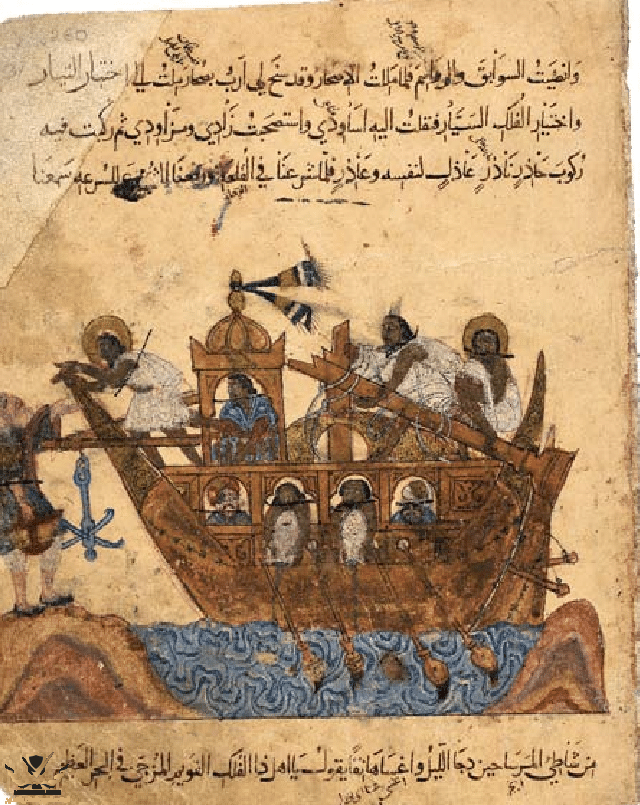 وانضيت السوابق والرواسم فلما مللت الاصحار وقد سنح لي ارب بصحار ملت الى اختيار التيار
واختيار الفلك السيار فنقلت اليه اساودي واستصحبت زادي ومزاودي ثم ركبت فيه
ركوب حاذر ناذر عاذل لنفسه وعاذر فلما شرعنا في القلعة ورفعنا الشرع للسرعه سمعنا
من شاطئ المرسا حين دجا الليل واغسا هاتفا يقول يا اهل ذا الفلك القويم المزجى في البحر العظيم